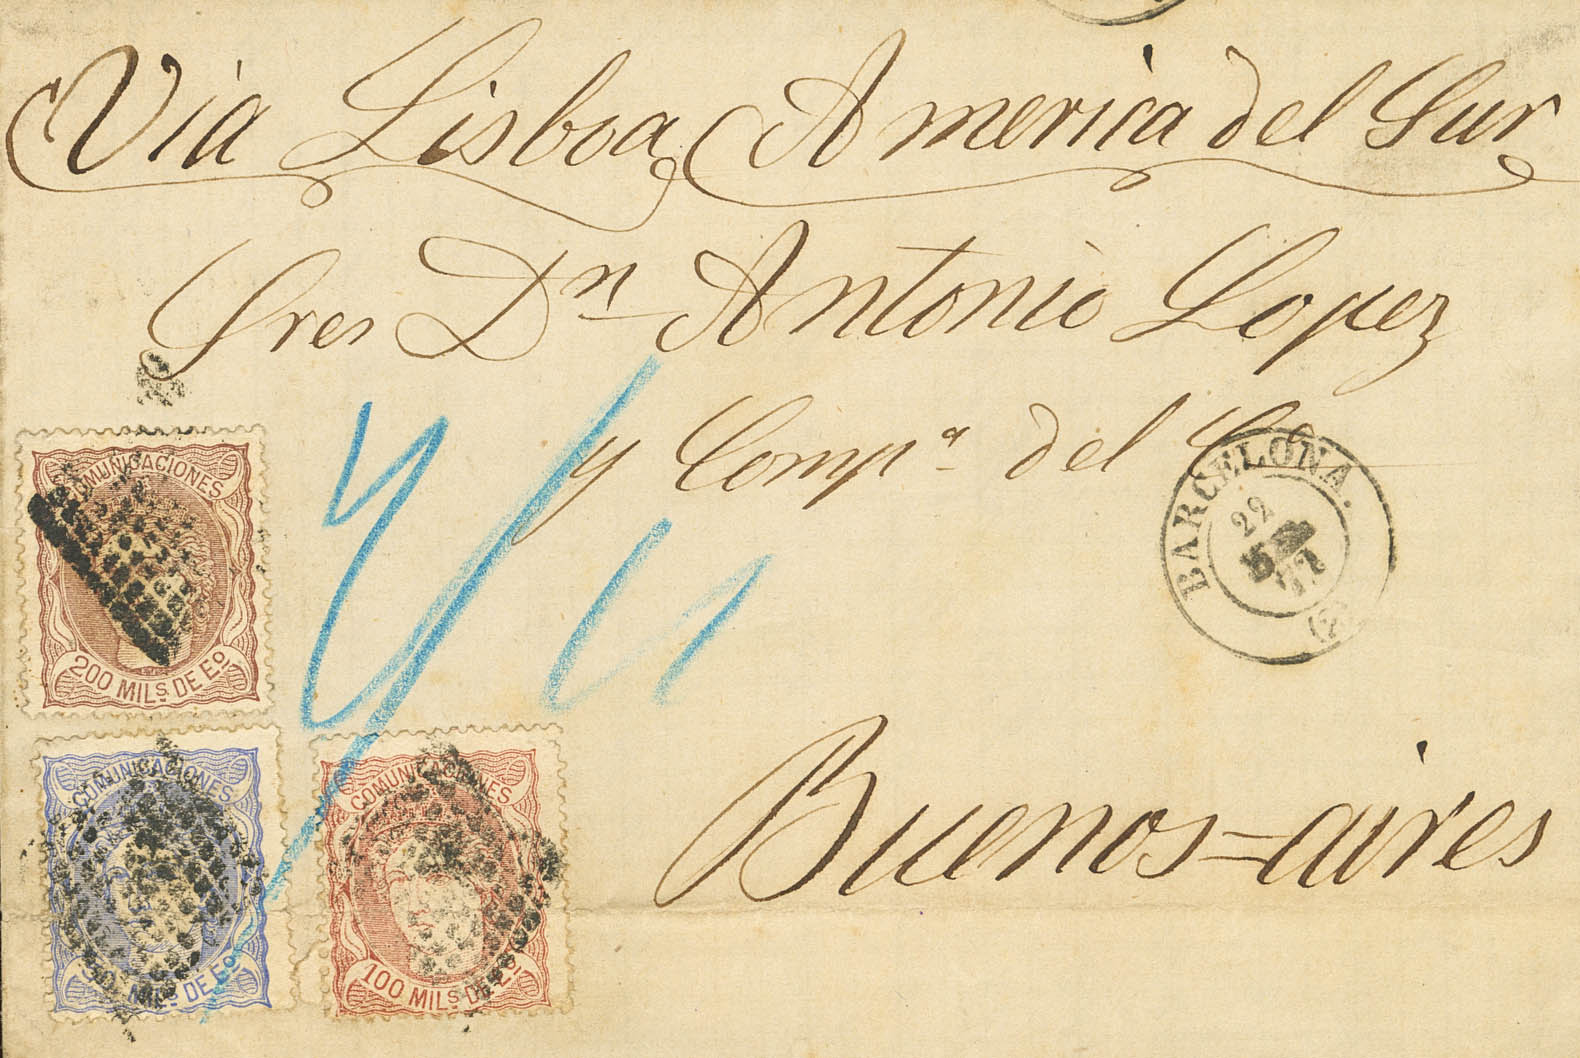 Via Lisboa America del Sur
Sres Dn Antonio Lopez
y Compa del Co
BARCELONA.
22
71
(2)
COMUNICACIONES
200 MILS DE EO
COMUNICACIONES
MILS DE EO
COMUNICACIONES
100 MILS DE EO
Buenos=aires